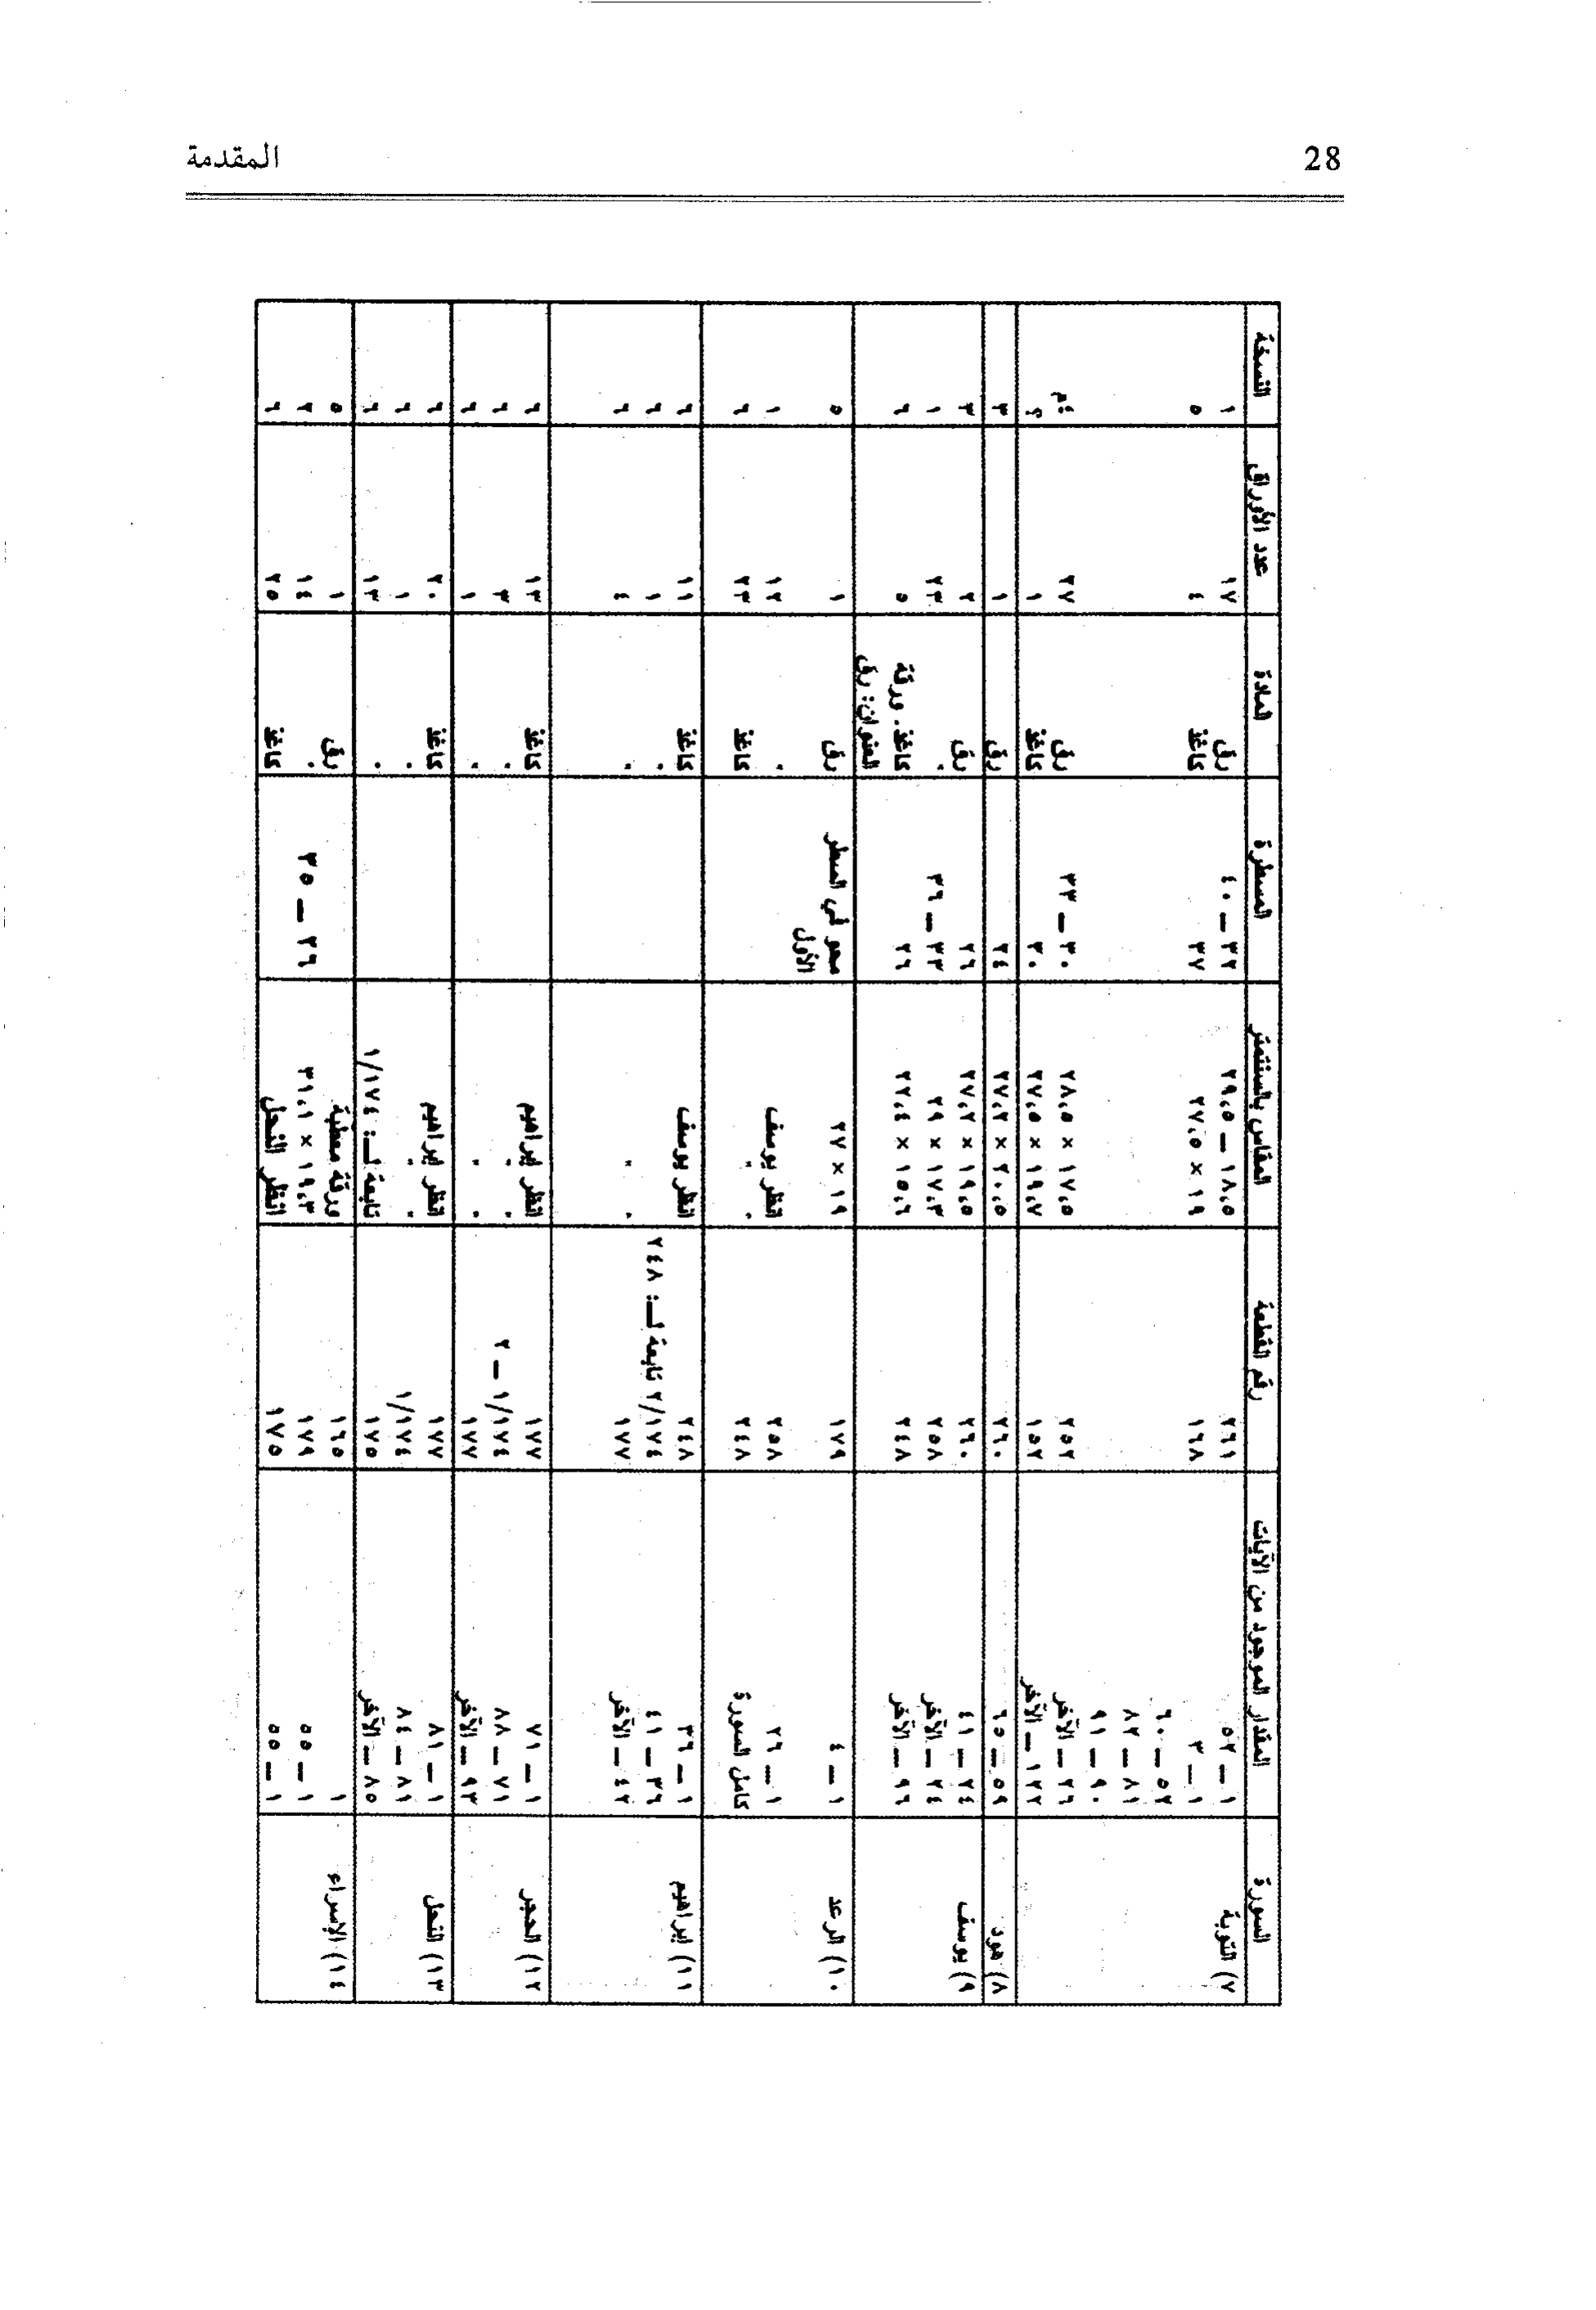 المقدمة 28
السورة | المقدار الموجود من الآيات | رقم القطعة | المقاس بالسنتمتر | المسطرة | المادة | عدد الأوراق | النسخة
٧) التوبة | ١ — ٥٢ | ٢٦١ | ١٨,٥ — ٢٩,٥ | ٣٢ — ٤٠ | رق | ١٧ | ١
١ — ٣ | ١٦٨ | ١٩ × ٢٧,٥ | ٣٧ | كاغذ | ٤ | ٥
٥٢ — ٦٠
٨١ — ٨٢
٩٠ — ٩١
٢٦ — الآخر | ٢٥٢ | ١٧,٥ × ٢٨,٥ | ٣٠ — ٣٣ | رق | ٢٧
١٢٢ — الآخر | ١٥٢ | ١٩,٧ × ٢٧,٥ | ٣٠ | كاغذ | ١ | ؟
٨) هود | ٥٩ — ٦٥ | ٢٦٠ | ٢٠,٥ × ٢٧,٢ | ٢٤ | رق | ١ | ٣
٩) يوسف | ٢٤ — ٤١ | ٢٦٠ | ١٩,٥ × ٢٧,٢ | ٢٦ | رق | ٢ | ٣
٢٤ — الآخر | ٢٥٨ | ١٧,٣ × ٢٩ | ٣٣ — ٣٦ | . | ٢٣ | ١
٩٦ — الآخر | ٢٤٨ | ١٥,٦ × ٢٢,٤ | ٢٦ | كاغذ. ورقة | ٥ | ٦
العنوان: رق
١٠) الرعد | ١ — ٤ | ١٧٩ | ١٩ × ٢٧ | محو في السطر | رق | ١ | ٥
الأول
١ — ٢٦ | ٢٥٨ | انظر يوسف | . | ١٢ | ١
كامل السورة | ٢٤٨ | . . | كاغذ | ٢٣ | ٦
١١) إبراهيم | ١ — ٣٦ | ٢٤٨ | انظر يوسف | كاغذ | ١١ | ٦
٣٦ — ٤١ | ٢/١٧٤ تابعة لـ: ٢٤٨ | . | ١ | ٦
٤٢ — الآخر | ١٧٧ | . . | . | ٤ | ٦
١٢) الحجر | ١ — ٧١ | ١٧٧ | انظر إبراهيم | كاغذ | ١٣ | ٦
٧١ — ٨٨ | ١/١٧٤ — ٢ | . . | . | ٣ | ٦
٩٣ — الآخر | ١٧٧ | . . | . | ١ | ٦
١٣) النحل | ١ — ٨١ | ١٧٧ | انظر إبراهيم | كاغذ | ٢٠ | ٦
٨١ — ٨٤ | ١/١٧٤ | . . | . | ١ | ٦
٨٥ — الآخر | ١٧٥ | تابعة لـ: ١/١٧٤ | . | ١٣ | ٦
١٤) الإسراء | ١ | ١٦٥ | ورقة معطية | رق | ١ | ٥
١ — ٥٥ | ١٧٩ | ١٩,٣ × ٣١,١ | ٢٦ — ٣٥ | . | ١٤ | ٢
١ — ٥٥ | ١٧٥ | انظر النحل | كاغذ | ٢٥ | ٦